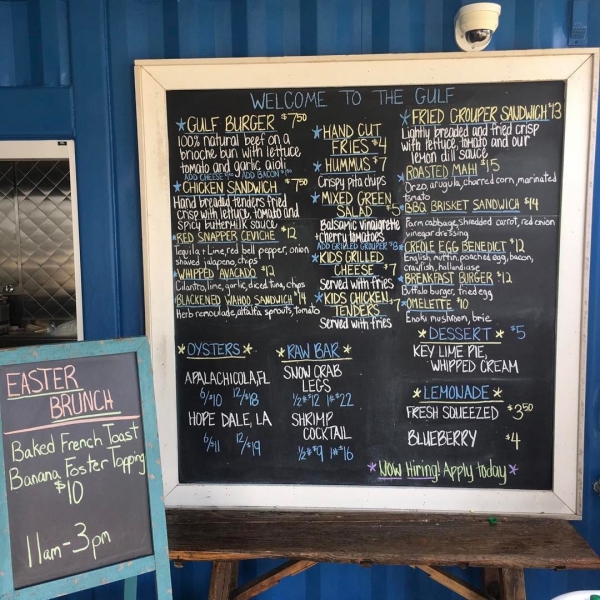 WELCOME TO THE GULF
GULF BURGER $7.50
100% natural beef on a
brioche bun with lettuce
tomato and garlic aioli
ADD CHEESE ADD BACON
CHICKEN SANDWICH $7.50
Hand breaded tenders fried
crisp with lettuce, tomato and
spicy buttermilk sauce
RED SNAPPER CEVICHE $12
Tequila + Lime, red bell pepper, onion
shaved jalapeno, chips
WHIPPED AVACADO $12
Cilantro, lime, garlic, diced tuna, chips
BLACKENED WAHOO SANDWICH $14
Herb remoulade, alfalfa sprouts, tomato
HAND CUT
FRIES $4
HUMMUS $7
Crispy pita chips
MIXED GREEN
SALAD $5
Balsamic vinaigrette
+ cherry tomatoes
ADD GRILLED GROUPER $8
KIDS GRILLED
CHEESE $7
Served with fries
KIDS CHICKEN
TENDERS $7
Served with fries
FRIED GROUPER SANDWICH $13
Lightly breaded and fried crisp
with lettuce, tomato and our
lemon dill sauce
ROASTED MAHI $15
Orzo, arugula, charred corn, marinated
tomato
BBQ BRISKET SANDWICH $14
Farm cabbage, shredded carrot, red onion
vinegar dressing
CREOLE EGG BENEDICT $12
English muffin, poached egg, bacon,
crawfish, hollandiase
BREAKFAST BURGER $12
Buffalo burger, fried egg
OMELETTE $10
Enoki mushroom, brie
OYSTERS
APALACHICOLA, FL
6/$10 12/$18
HOPE DALE, LA
6/$11 12/$19
RAW BAR
SNOW CRAB
LEGS
1/2# $12 1# $22
SHRIMP
COCKTAIL
1/2# $9 1# $16
DESSERT $5
KEY LIME PIE,
WHIPPED CREAM
LEMONADE
FRESH SQUEEZED $3.50
BLUEBERRY $4
NOW Hiring! Apply today
EASTER
BRUNCH
Baked French Toast
Banana Foster Topping
$10
11am-3pm